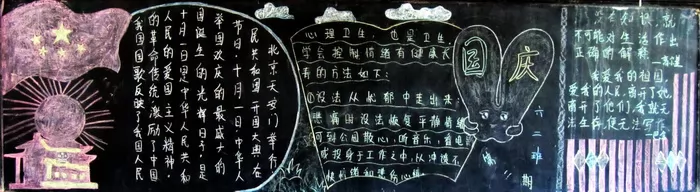 北京天安门举行
民共和国开国大典，在
节日，十月一日中华人
举国欢庆的最盛大的
国诞生的光辉日子是
十月一日是中华人民共和
人民的爱国主义精神，
的革命传统，激励了中国
我国国歌反映了我国人民
心理卫生，也是卫生，
学会控制情绪有健康
的方法如下：
①设法从忧郁中走出来
设法恢复平静情绪
可到公园散心，听音乐，看电影
或投身于工作之中，从冲淡不
快情绪和
国庆
六二班
期
不可能对生活作出
正确的解释。
我爱我的祖国，
爱我的人民，离开了她，
离开了他们，我就无
法生存，便无法写